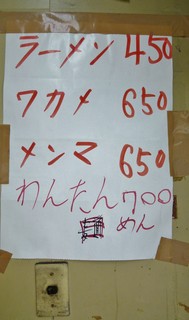 ラーメン 450
ワカメ 650
メンマ 650
わんたん 700
めん